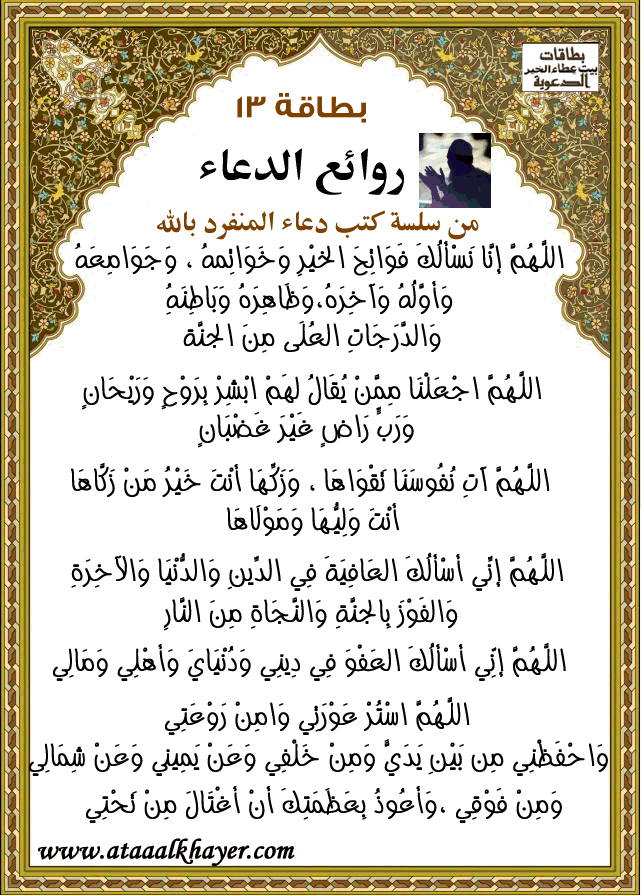 بطاقات
بيت عطاء الخير
الدعوية
بطاقة ١٣
روائع الدعاء
من سلسة كتب دعاء المنفرد بالله
اللَّهُمَّ إنَّا نَسْألُكَ فَوَاتِحَ الخَيْرِ وَخَوَاتِمهُ ، وَجَوَامِعَهُ
وَأوَّلُهُ وَآخِرَهُ،وَظَاهِرَهُ وَبَاطِنَهِ
وَالدَّرَجَاتِ العُلَى مِنَ الجنَّة
اللَّهُمَّ اجْعَلْنَا مِمَّنْ يُقَالُ لهَمْ ابْشِرْ بِرَوْحٍ وَرَيْحَانٍ
وَرَبٍّ رَاضٍ غَيْرَ غَضْبَانٍ
اللَّهُمَّ آتِ نُفُوسَنَا تَقْوَاهَا ، وَزَكِّهَا أنْتَ خَيْرُ مَنْ زَكَّاهَا
أنْتَ وَلِيُّهَا وَمَوْلَاهَا
اللَّهُمَّ إنِّي أسْألُكَ العَافِيَةَ فِي الدِّينِ وَالدُّنْيَا وَالآخِرَةِ
وَالفَوْزَ بِالجنَّةِ وَالنَّجَاةِ مِنَ النَّارِ
اللَّهُمَّ إنِّي أسْألُكَ العَفْوَ فِي دِينِي وَدُنْيَايَ وَأهْلِي وَمَالِي
اللَّهُمَّ اسْتُرْ عَوْرَتِي وَامِنْ رَوْعَتِي
وَاحْفَظْنِي مِن بَيْنِ يَدَيَّ وَمِنْ خَلْفِي وَعَنْ يَمِينِي وَعَنْ شِمَالِي
وَمِنْ فَوْقِي ،وَأعُوذُ بِعَظَمَتِكَ أنْ أغْتَالَ مِنْ تَحْتِي
www.ataaalkhayer.com